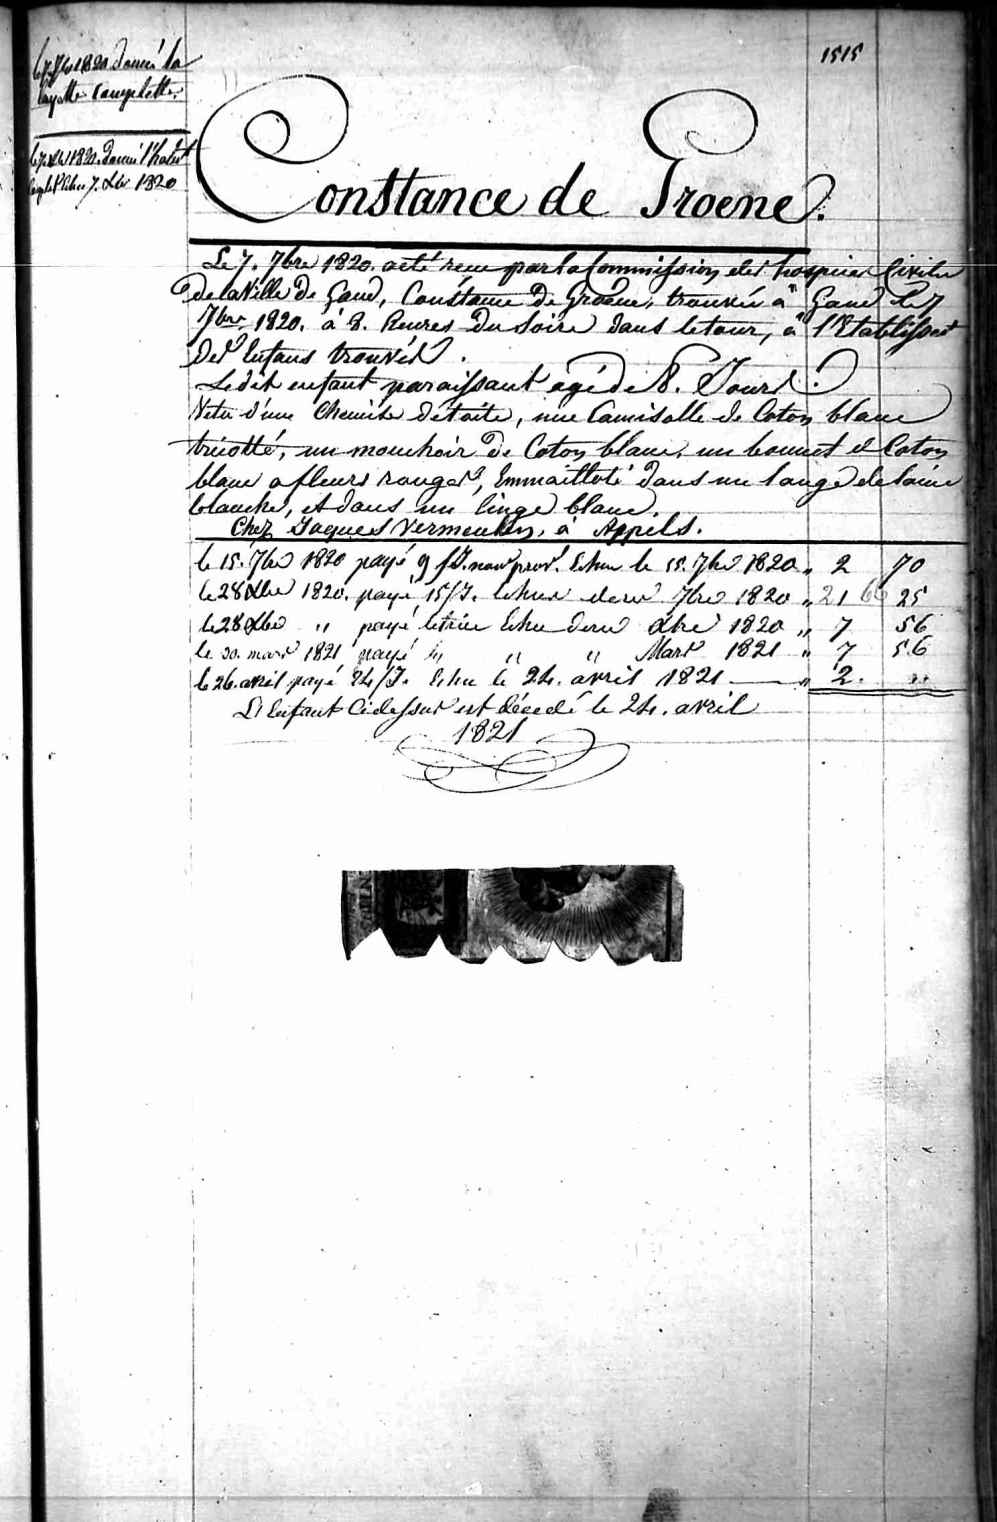 1515
le 7. 7bre 1820. donné la
layette complette.
le 7. Xbre 1820. donné l'habit
Echu 7. Xbre 1820
Constance de Groene.
Le 7. 7bre 1820. a été reçu par la Commission des hospices Civiles
de la Ville de Gand, Constance De Groene, trouvée à Gand le 7
7bre 1820. à 8. heures Du Soire dans le tour, à l'Etablissent
Des Enfans trouvés.
Ledit enfant paraissant agé de 8. Jours.
Vetu d'une Chemise de toile, une Camisolle de Coton blanc
tricotté, un mouchoir de Coton blanc, un bonnet de Coton
blanc a fleurs rouges, Emmailloté dans un lange de laine
blanche, et dans un linge blanc.
Chez Jaques Vermeulen, à Appels.
le 15. 7bre 1820 payé 9 f/J. nour prov. Echu le 15. 7bre 1820 " 2 70
le 28 Xbre 1820. payé 15/J. Echus dern 7bre 1820 " 21 25
le 28 Xbre " payé letrim Echu dern Xbre 1820 " 7 56
le 30. mars 1821 payé " " " Mars 1821 " 7 56
le 26. avril payé 24/J. Echu le 24. avril 1821 " 2. "
L'Enfant Cidessus est décédé le 24. avril
1821